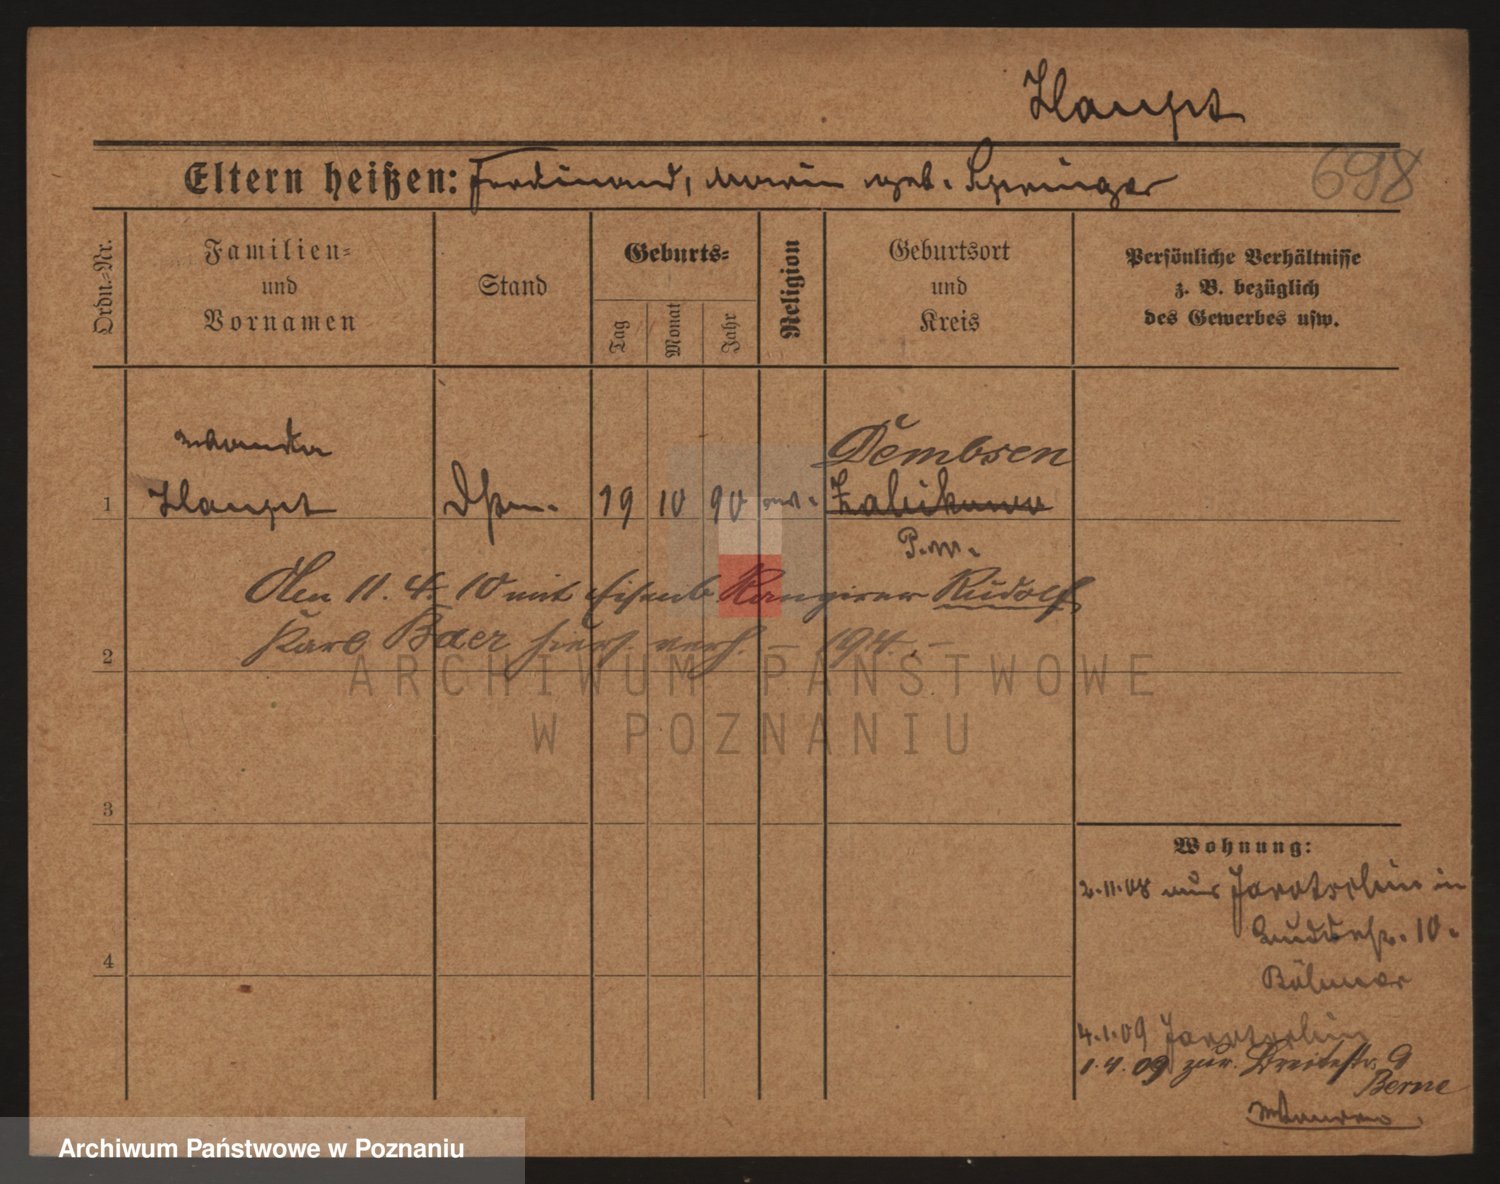 Haupt
Eltern heißen: Ferdinand, Marie geb. Springer
698
Ordn.-Nr.
Familien-
und
Vornamen
Stand
Geburts-
Tag
Monat
Jahr
Religion
Geburtsort
und
Kreis
Persönliche Verhältnisse
z. B. bezüglich
des Gewerbes usw.
Wanda
Dembsen
1 Haupt 19 10 90 Zabikowo
P.W.
Am 11. 4. 10 mit Eisenb. Rangierer Rudolf
Karl Baer hier verh. – 194. –
2
3
4
Wohnung:
2.11.08 aus Jarotschin in
10.
4.1.09 Jarotschin
1.4.09 zur. Breitestr. 9
Berne
ARCHIWUM PAŃSTWOWE
W POZNANIU
Archiwum Państwowe w Poznaniu